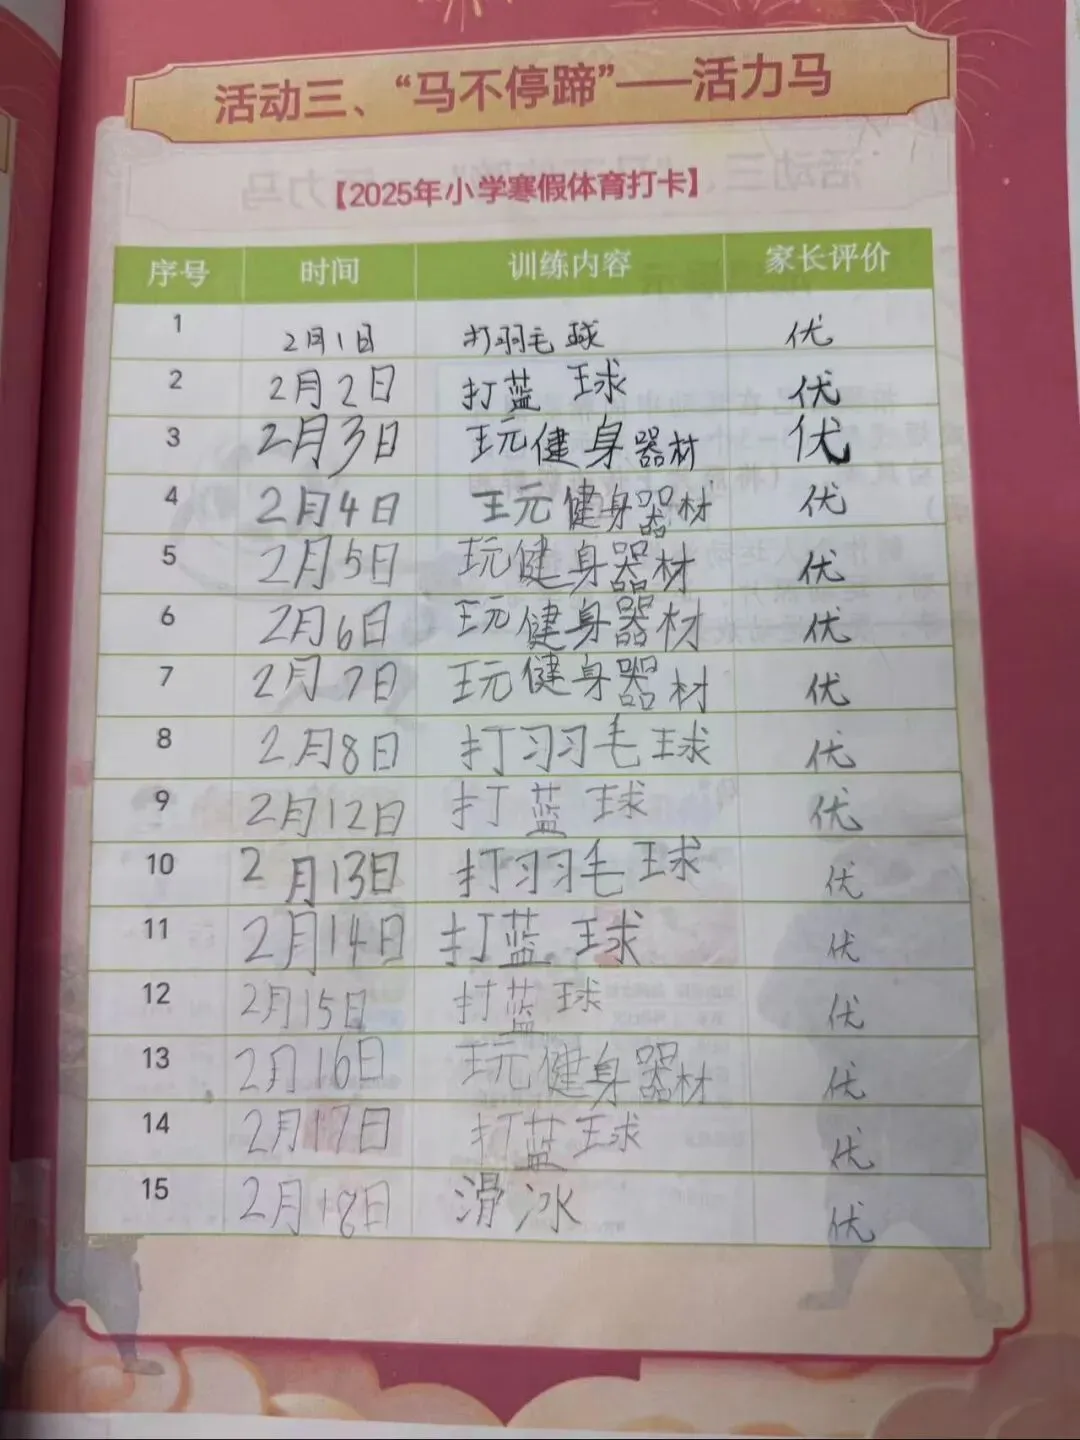 活动三、“马不停蹄”——活力马
【2025年小学寒假体育打卡】
序号 时间 训练内容 家长评价
1 2月1日 打羽毛球 优
2 2月2日 打蓝球 优
3 2月3日 玩健身器材 优
4 2月4日 玩健身器材 优
5 2月5日 玩健身器材 优
6 2月6日 玩健身器材 优
7 2月7日 玩健身器材 优
8 2月8日 打羽毛球 优
9 2月12日 打蓝球 优
10 2月13日 打羽毛球 优
11 2月14日 打蓝球 优
12 2月15日 打蓝球 优
13 2月16日 玩健身器材 优
14 2月17日 打蓝球 优
15 2月18日 滑冰 优